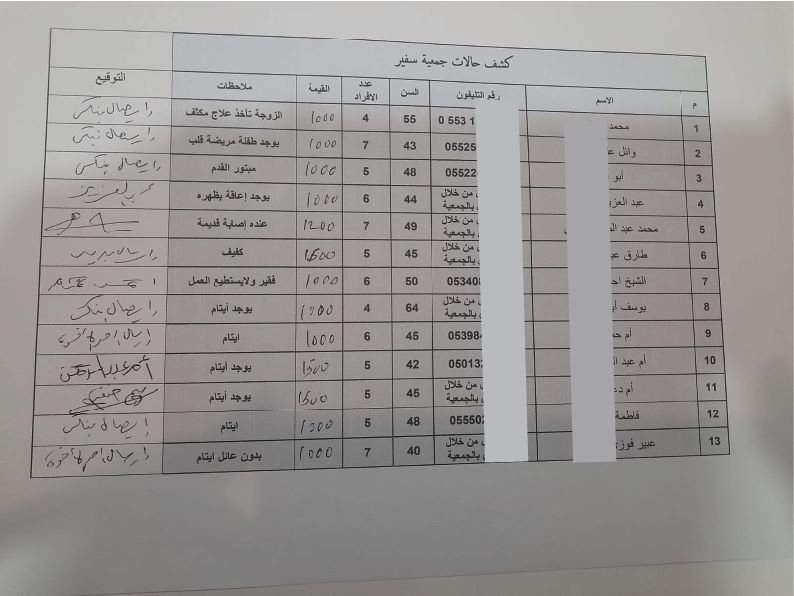 كشف حالات جمعية سفير
م الاسم رقم التليفون السن عدد الافراد القيمة ملاحظات التوقيع
1 محمد 0 553 1 55 4 1000 الزوجة تأخذ علاج مكثف إيصال بنكي
2 وائل 05525 43 7 1000 يوجد طفلة مريضة قلب إيصال بنكي
3 أبو 05522 48 5 1000 مبتور القدم إيصال بنكي
4 عبد العزيز من خلال بالجمعية 44 6 1000 يوجد إعاقة بظهره
5 محمد عبد من خلال بالجمعية 49 7 1200 عنده إصابة قديمة
6 طارق من خلال بالجمعية 45 5 1500 كفيف
7 الشيخ 05340 50 6 1000 فقير ولايستطيع العمل
8 يوسف من خلال بالجمعية 64 4 يوجد أيتام إيصال بنكي
9 أم 05398 45 6 1000 ايتام
10 أم عبد 05013 42 5 1500 يوجد أيتام
11 أم من خلال بالجمعية 45 5 1500 يوجد أيتام
12 فاطمة 05550 48 5 ايتام إيصال بنكي
13 عبير فوزي من خلال بالجمعية 40 7 1000 بدون عائل ايتام